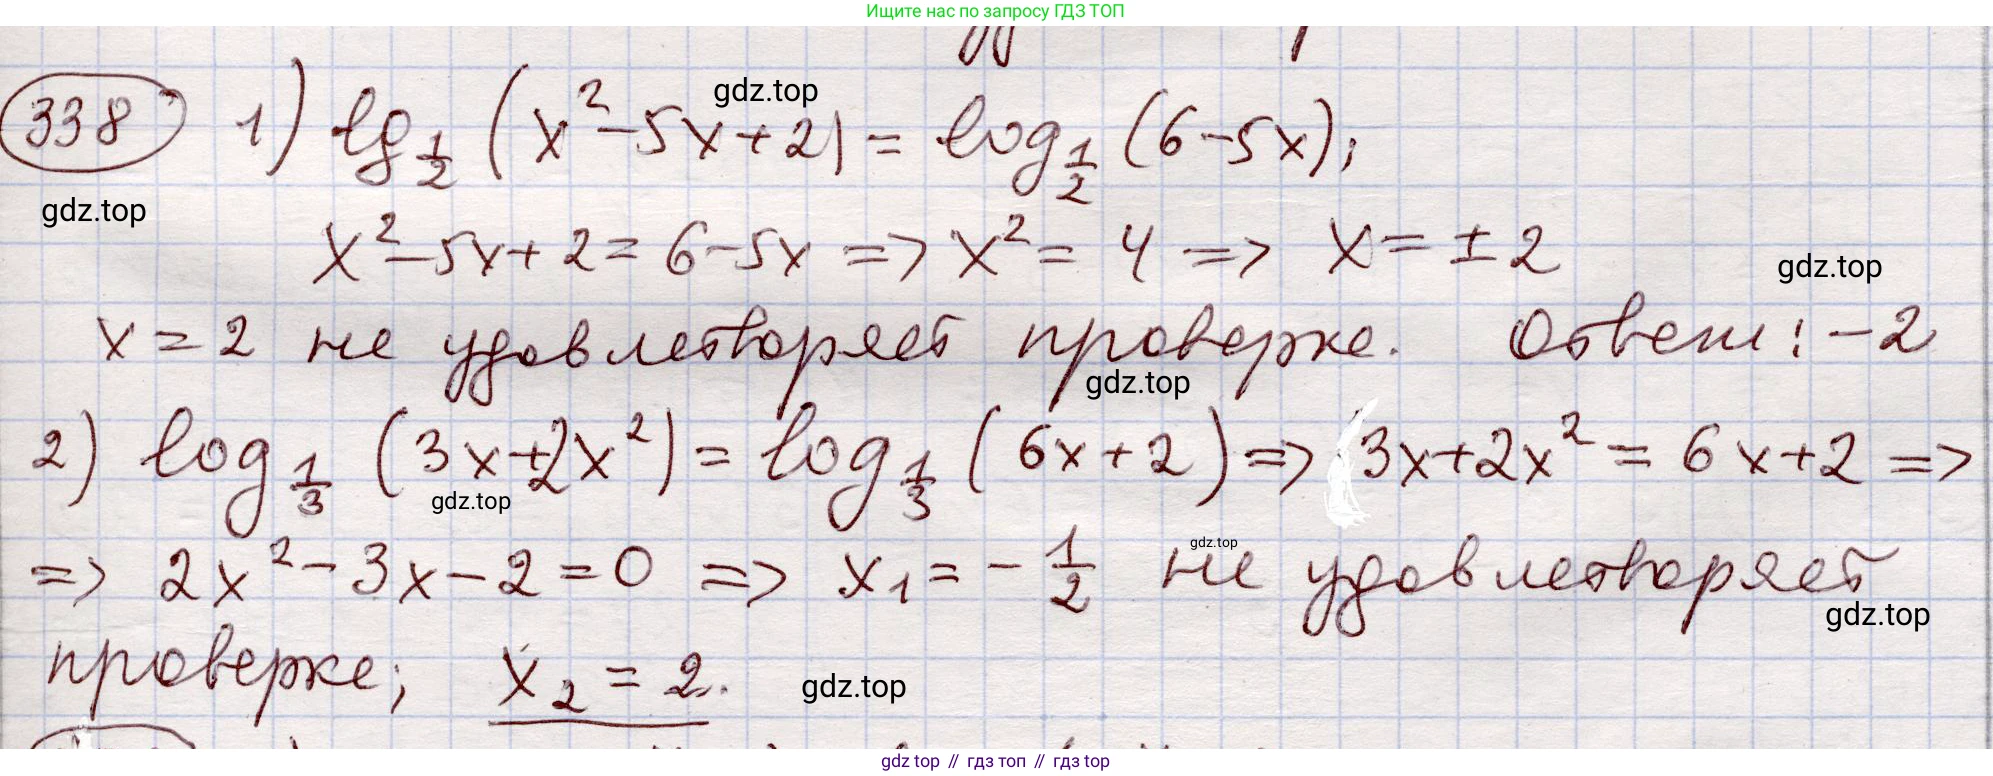 Ищите нас по запросу ГДЗ ТОП
338 1) lg 1/2 (x² - 5x + 2) = log 1/2 (6 - 5x);
gdz.top
gdz.top
x² - 5x + 2 = 6 - 5x => x² = 4 => x = ± 2
gdz.top
x = 2 не удовлетворяет проверке. Ответ: -2
gdz.top
2) log 1/3 (3x + 2x²) = log 1/3 (6x + 2) => 3x + 2x² = 6x + 2 =>
gdz.top
gdz.top
=> 2x² - 3x - 2 = 0 => x₁ = - 1/2 не удовлетворяет
gdz.top
проверке; x₂ = 2.
gdz.top
gdz top // гдз топ // гдз top